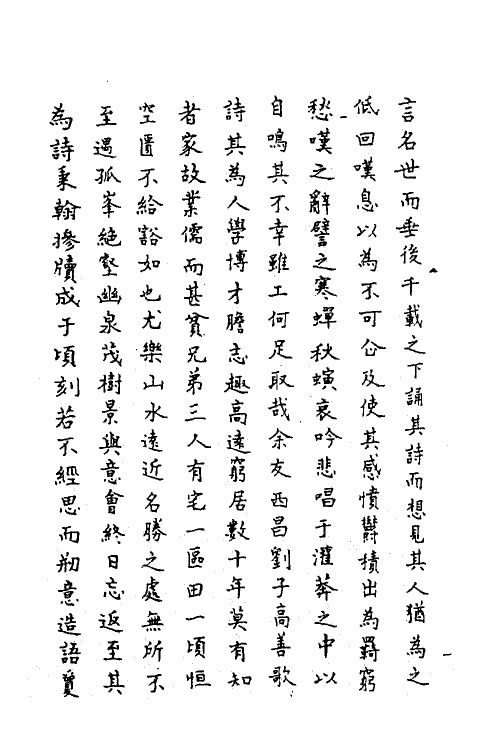 言名世而垂後千載之下誦其詩而想見其人猶為之
低回嘆息以為不可企及使其感憤欝積出為羇窮
愁嘆之辭譬之寒蟬秋螾哀吟悲唱于灌莽之中以
自鳴其不幸雖工何足取哉余友西昌劉子高善歌
詩其為人學博才贍志趣高遠窮居數十年莫有知
者家故業儒而甚貧兄弟三人有宅一區田一頃恒
空匱不給豁如也尤樂山水遠近名勝之處無所不
至遇孤峯絶壑幽泉茂樹景與意會終日忘返至其
為詩秉翰摻牘成于頃刻若不經思而剏意造語實